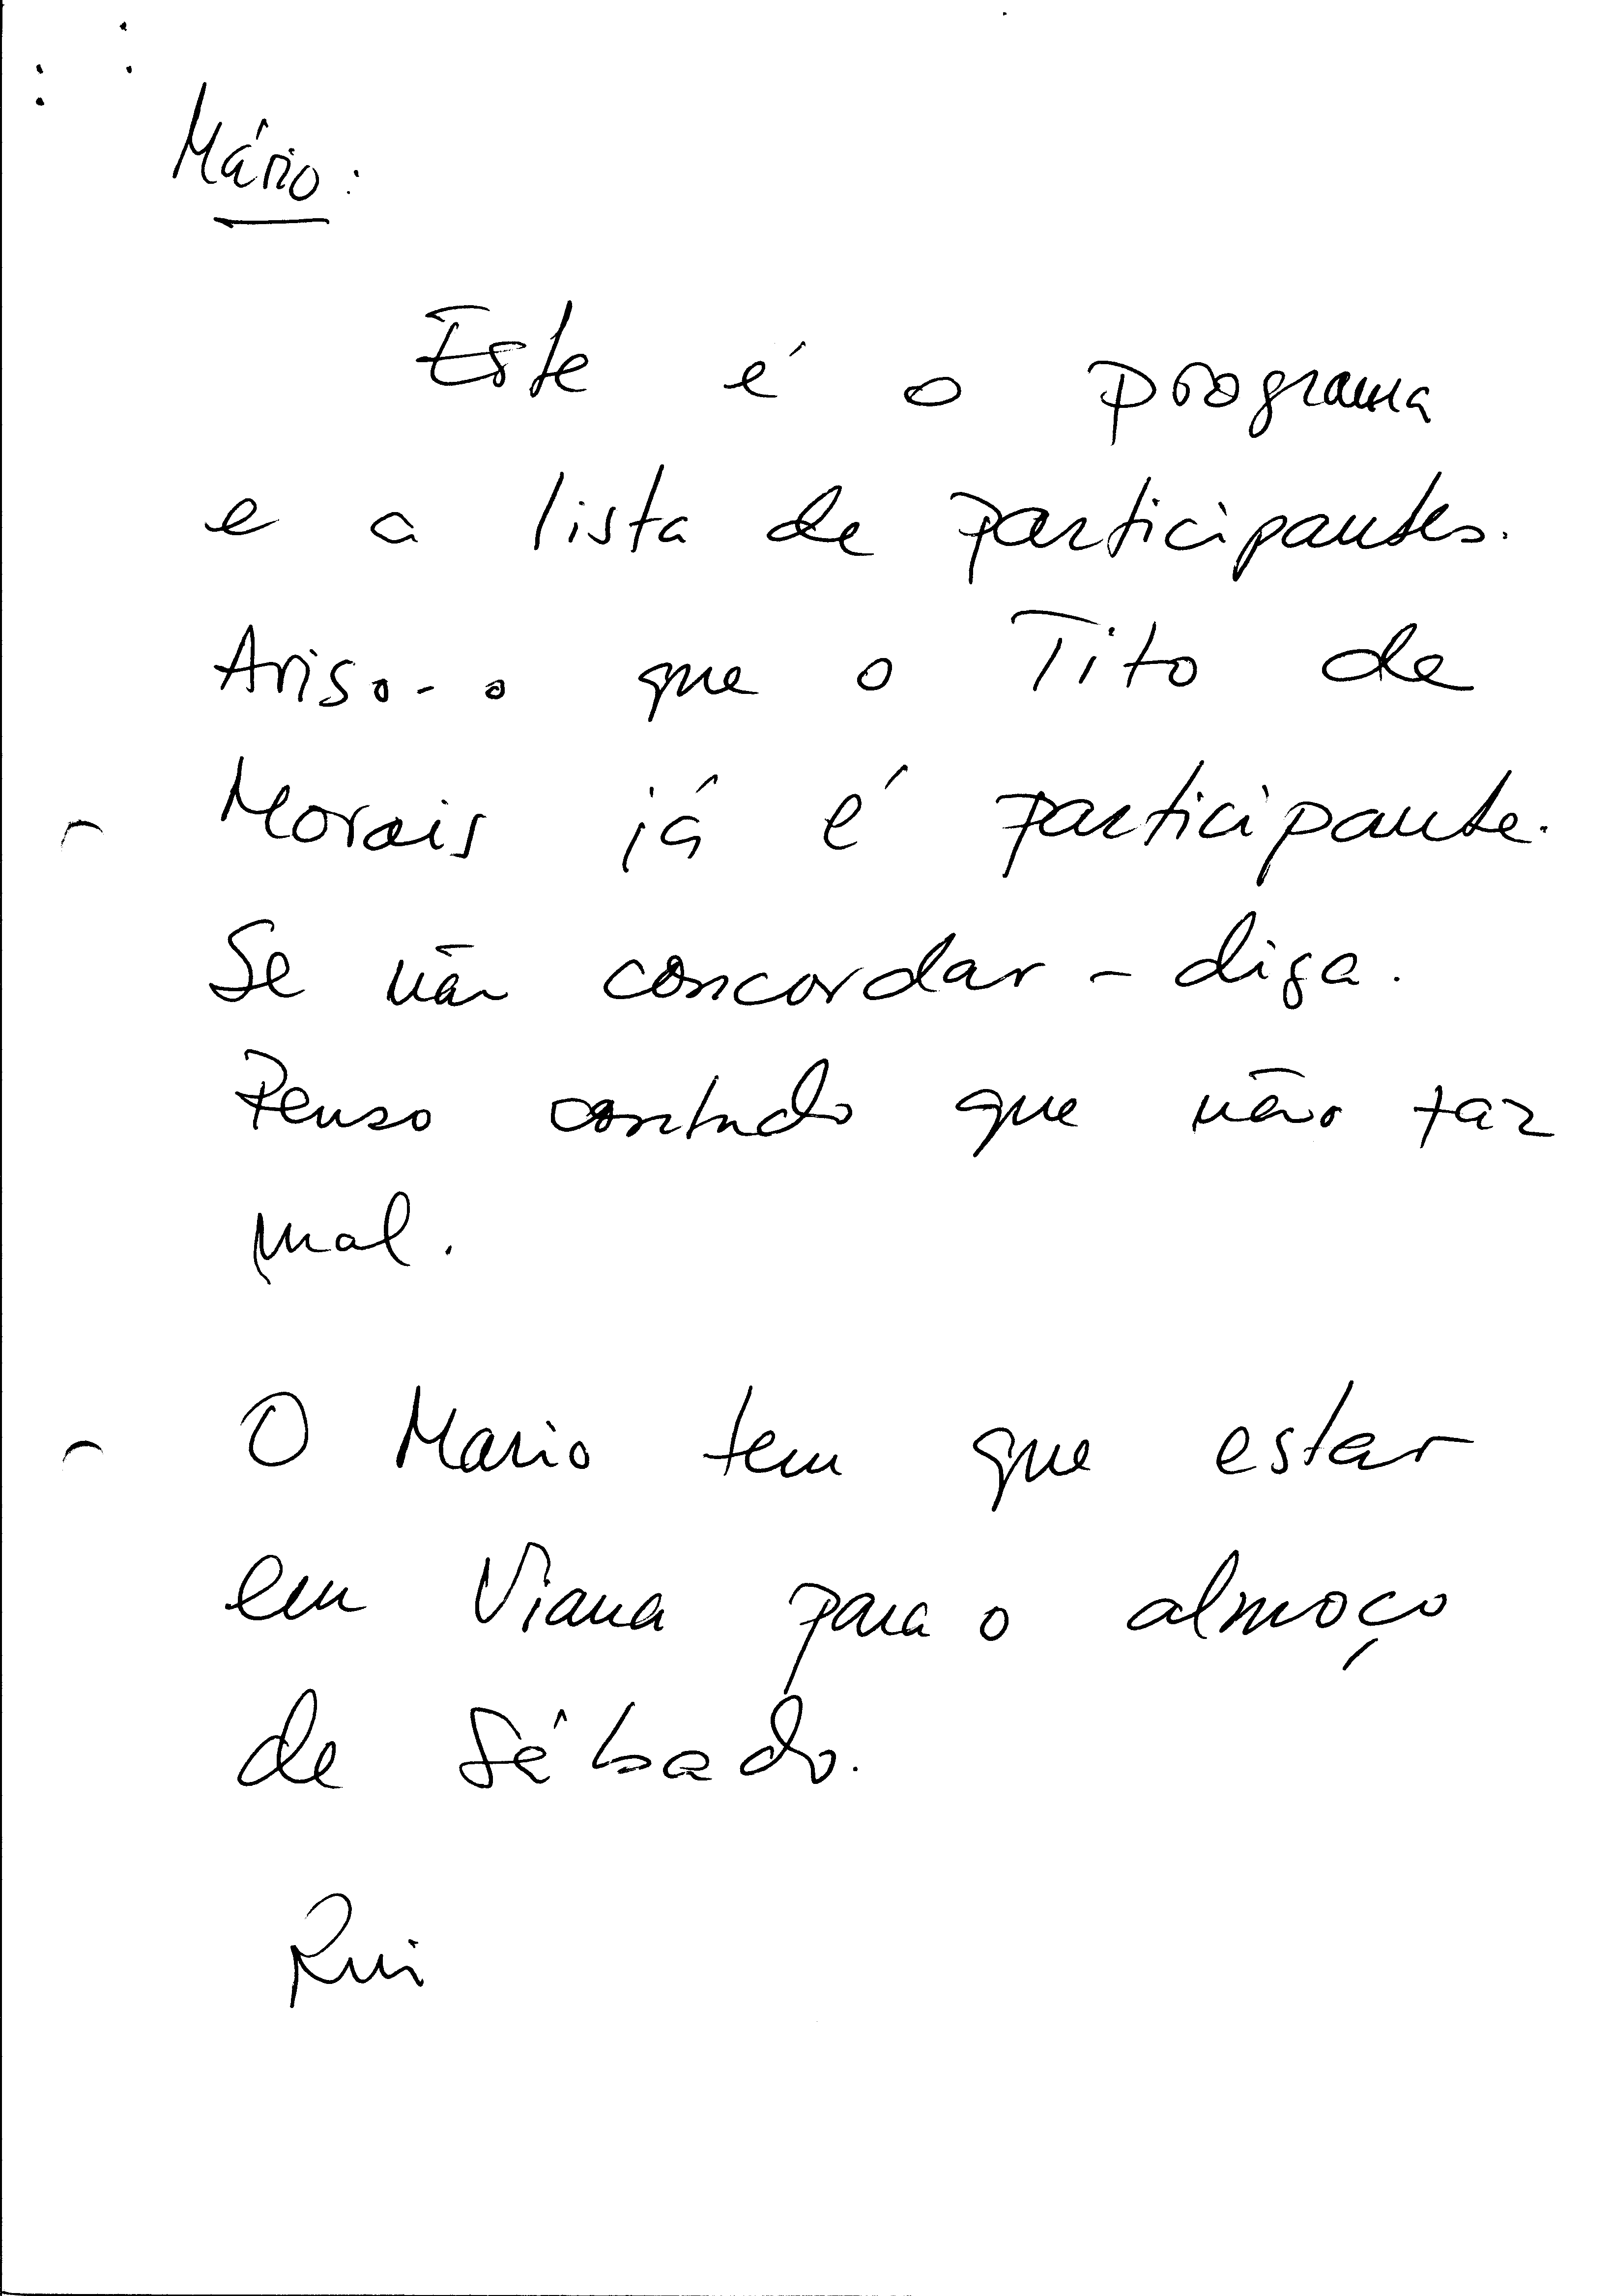 Mário:
Este é o programa
e a lista de participantes.
Aviso-o que o Tito de
Morais já é participante.
Se não concordar - diga.
Penso contudo que não faz
mal.
O Mario tem que estar
em Viana para o almoço
de Sábado.
Rui